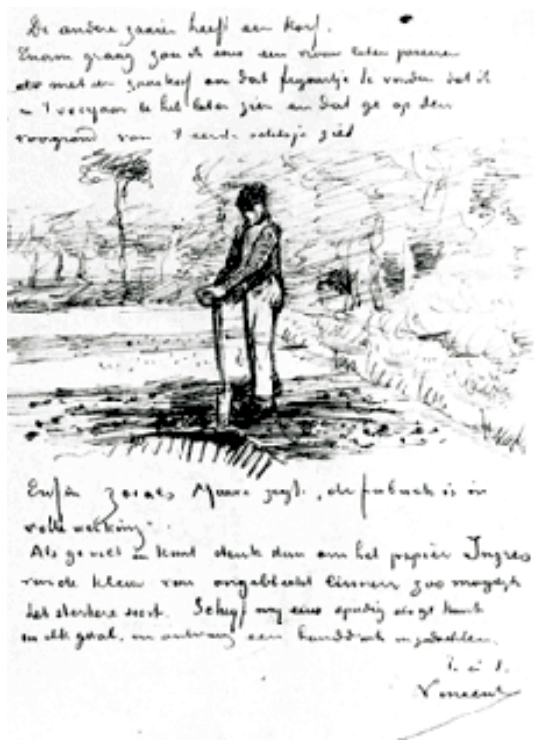 De andere zaaier heeft een korf.
Enorm graag zou ik eens een vrouw laten poseeren
met een zaaikorf om dat figuurtje te vinden dat ik
u 't voorjaar heb laten zien en dat ge op den
voorgrond van 't eerste schetsje ziet
Enfin zooals Mauve zegt, "de fabriek is in
volle werking".
Als ge wilt en kunt denk dan om het papier Ingres
van de kleur van ongebleekt linnen zoo mogelijk
het sterkere soort. Schrijf mij eens spoedig als ge kunt
in elk geval, en ontvang een handdruk in gedachten.
t. à t.
Vincent